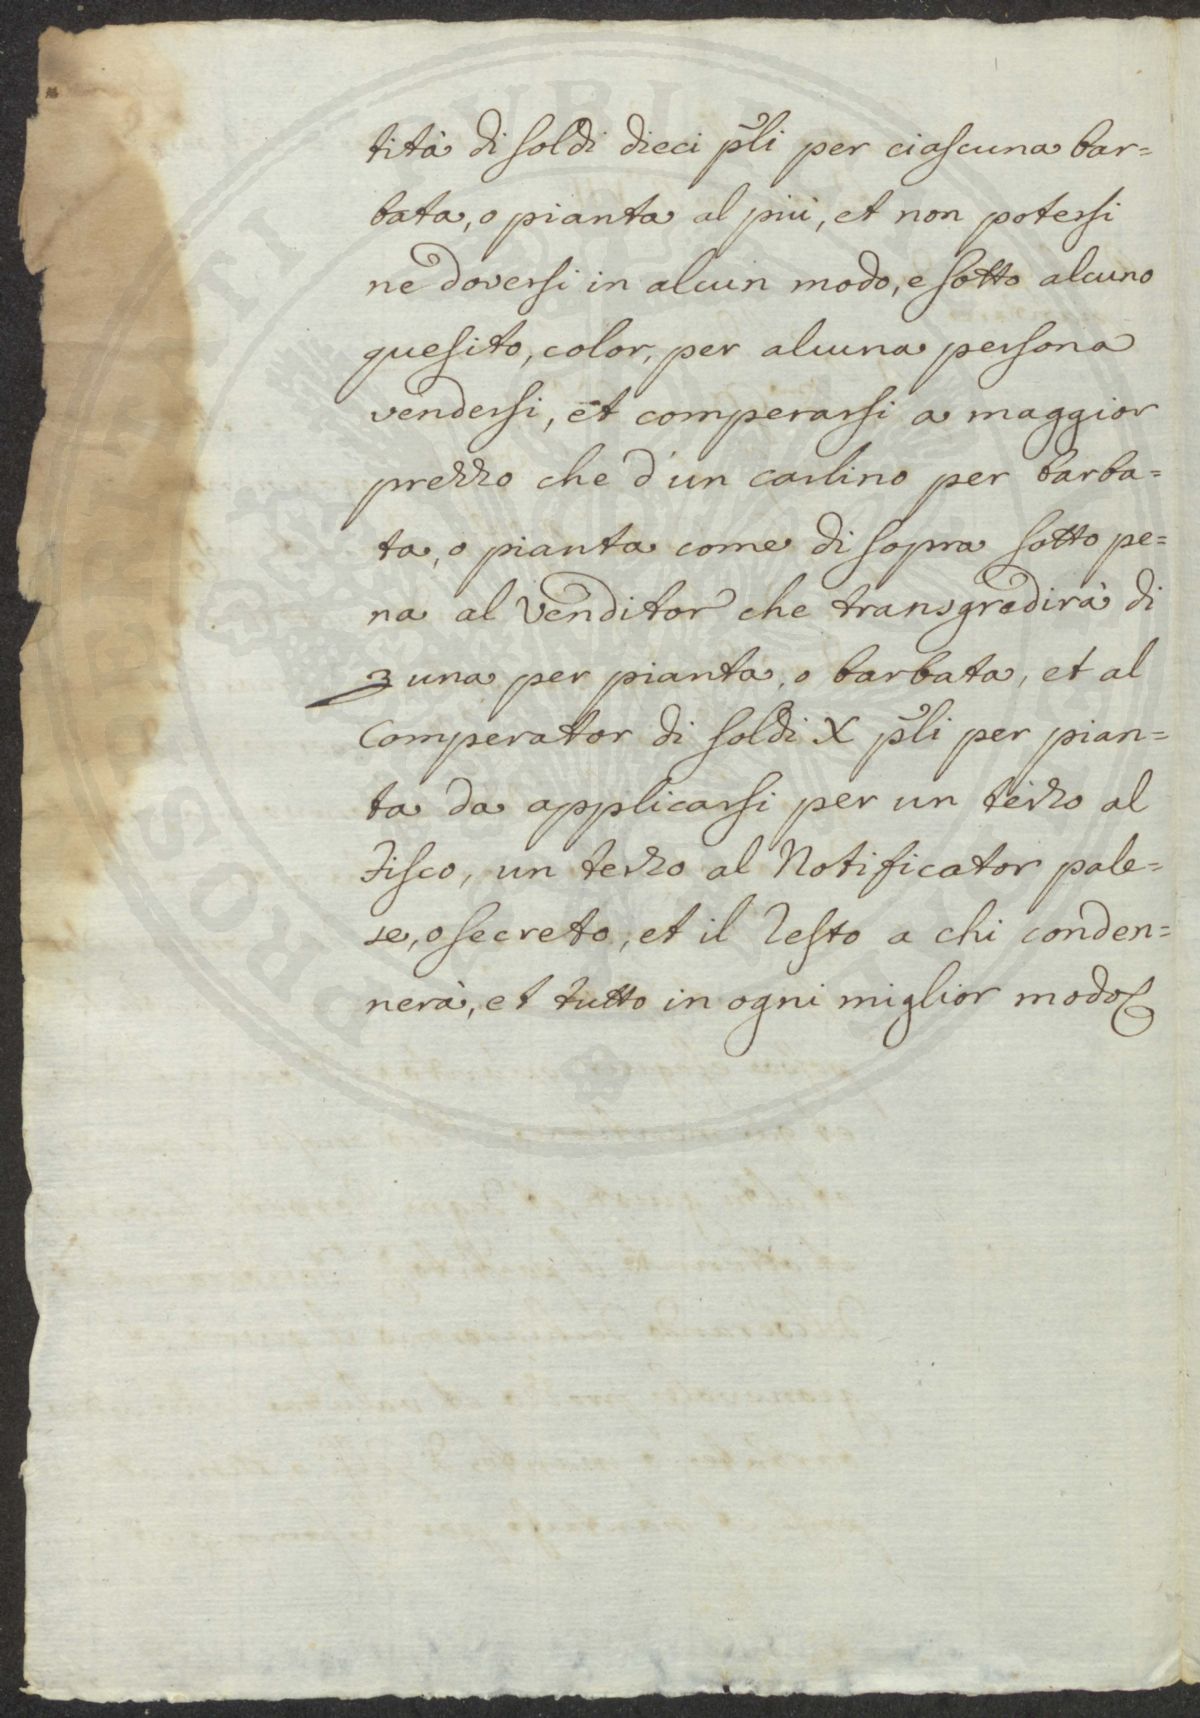 tità di soldi dieci p̃li per ciascuna bar=
bata, o pianta al più, et non potersi
ne doversi in alcun modo, e sotto alcuno
quesito, color, per alcuna persona
vendersi, et comperarsi a maggior
prezzo che d'un carlino per barba=
ta, o pianta come di sopra sotto pe=
na al Venditor che transgredirà di
una per pianta, o barbata, et al
Comperator di soldi X p̃li per pian=
ta da applicarsi per un terzo al
Fisco, un terzo al Notificator pale=
se, o secreto, et il Resto a chi conden=
nerà, et tutto in ogni miglior modo